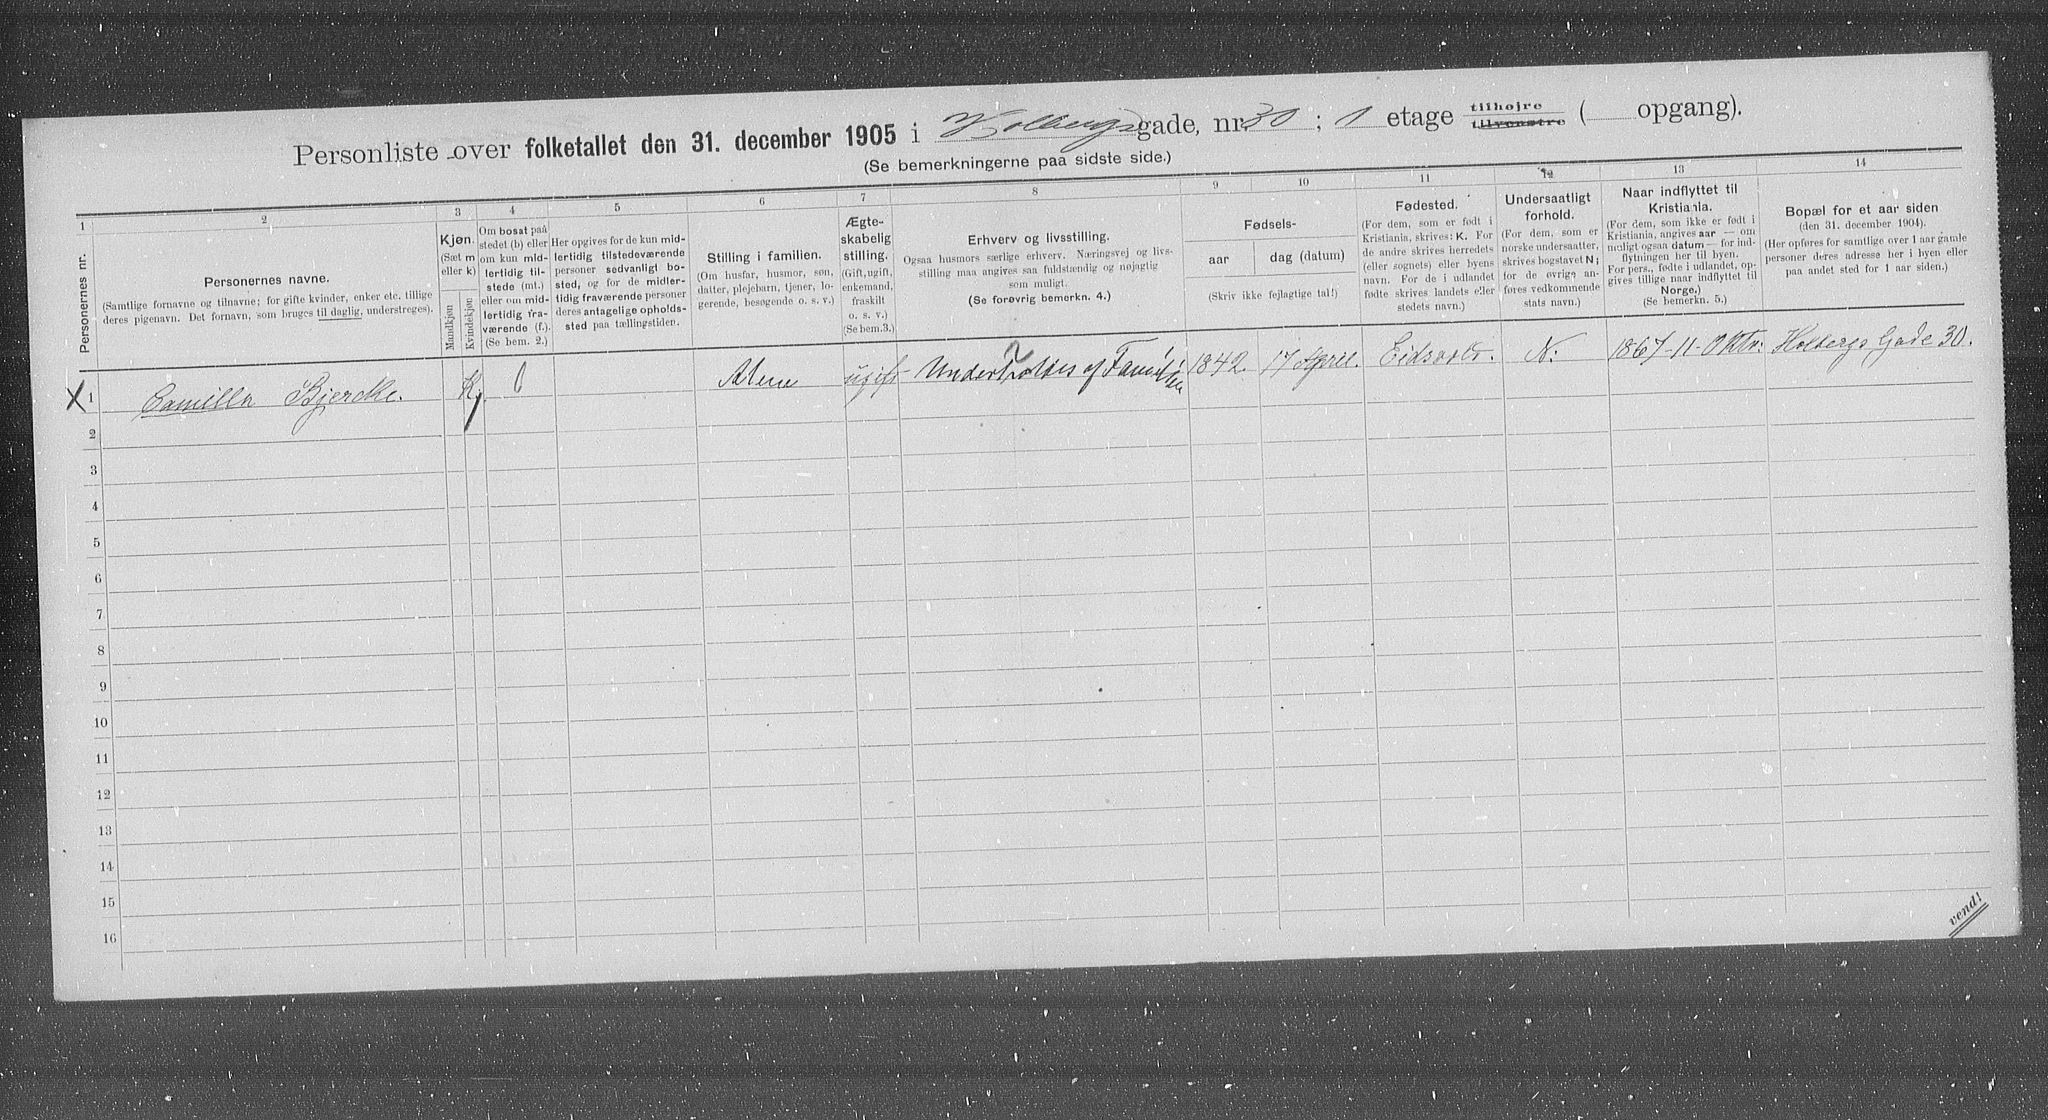 Personliste over folketallet den 31. december 1905 i Holbergs gade, nr. 30 ; 1 etage tilhøjre tilvenstre ( opgang).
(Se bemerkningerne paa sidste side.)
1 2 3 4 5 6 7 8 9 10 11 12 13 14
Personernes nr.
Personernes navne.
(Samtlige fornavne og tilnavne; for gifte kvinder, enker etc. tillige
deres pigenavn. Det fornavn, som bruges til daglig, understreges).
Kjøn.
(Sæt m
eller k)
Mandkjøn
Kvindekjøn
Om bosat paa
stedet (b) eller
om kun mid-
lertidig til-
stede (mt.)
eller om mid-
lertidig fra-
værende (f.).
(Se bem. 2.)
Her opgives for de kun mid-
lertidig tilstedeværende
personer sedvanligt bo-
sted, og for de midler-
tidig fraværende personer
deres antagelige opholds-
sted paa tællingstiden.
Stilling i familien.
(Om husfar, husmor, søn,
datter, plejebarn, tjener, lo-
gerende, besøgende o. s. v.)
Ægte-
skabelig
stilling.
(Gift, ugift,
enkemand,
fraskilt
o. s. v.)
(Se bem. 3.)
Erhverv og livsstilling.
Ogsaa husmors særlige erhverv. Næringsvej og livs-
stilling maa angives saa fuldstændig og nøjagtig
som muligt.
(Se forøvrig bemerkn. 4.)
Fødsels-
aar
dag (datum)
(Skriv ikke fejlagtige tal!)
Fødested.
(For dem, som er født i
Kristiania, skrives: K. For
de andre skrives herredets
(eller sognets) eller byens
navn. For de i udlandet
fødte skrives landets eller
stedets navn.)
Undersaatligt
forhold.
(For dem, som er
norske undersaatter,
skrives bogstavet N;
for de øvrige an-
føres vedkommende
stats navn.)
Naar indflyttet til
Kristiania.
(For dem, som ikke er født i
Kristiania, angives aar — om
muligt ogsaa datum — for ind-
flytningen her til byen.
For pers., fødte i udlandet, op-
gives tillige naar indflyttet til
Norge.)
(Se bemerkn. 5.)
Bopæl for et aar siden
(den 31. december 1904).
(Her opføres for samtlige over 1 aar gamle
personer deres adresse her i byen eller
paa andet sted for 1 aar siden.)
X 1 Camilla Bjercke. K. Alene ugift Underholdes af Familien 1842. 17 April. Eidsvold. N. 1867-11-Oktr. Holbergs Gade 30.
2
3
4
5
6
7
8
9
10
11
12
13
14
15
16
vend!